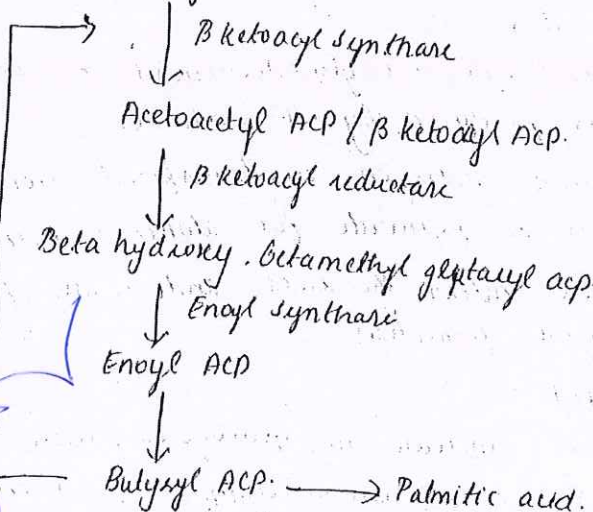 B ketoacyl synthase
Acetoacetyl ACP / β ketoacyl ACP.
β ketoacyl reductase
Beta hydroxy . betamethyl glutaryl acp.
Enoyl synthase
Enoyl ACP
Butyryl ACP. Palmitic acid.